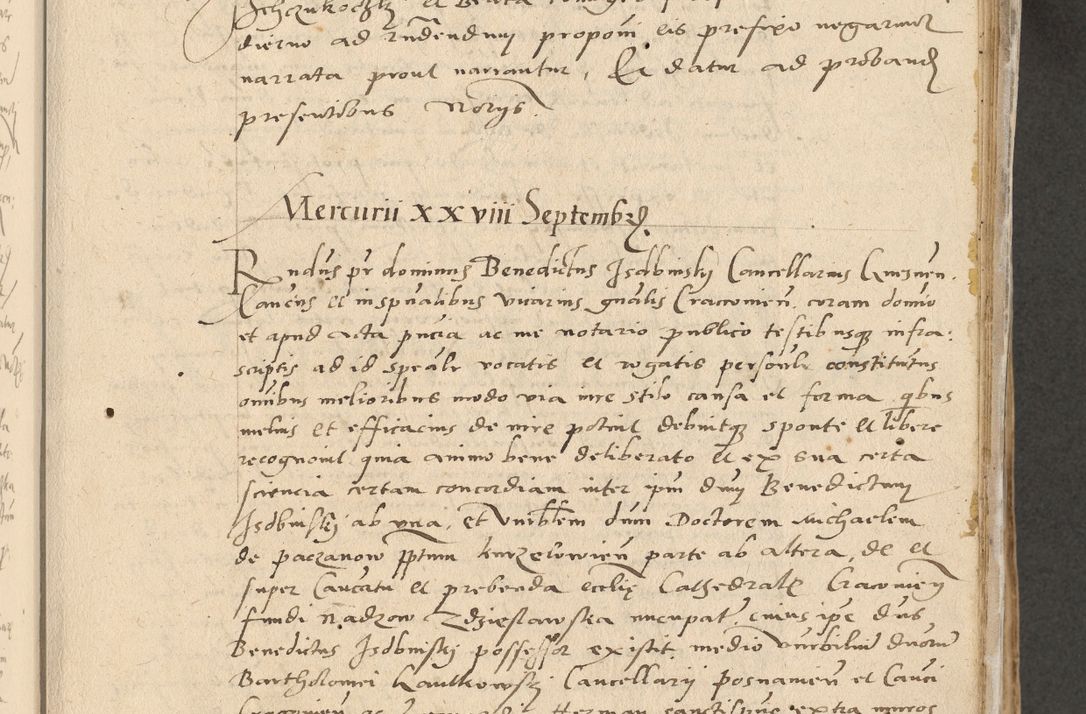 dierno ad Rndendum proponi eis prefixo negarunt
narrata prout narrantur, Et datur ad proband
presentibus Norijs
Mercurii xx viii Septembr
Rndus pr dominus Benedictus Jsdbinskij Cancellarius Gnesnen.
Caucus et in spualibus vicarius gnalis Cracouien. coram domio
et apud acta pncia ac me notario publico testibusq infra:
scriptis ad id spealr vocatis et rogatis personlr constitutus
omibus melioribus modo via iure stilo causa et forma qbus
melius et efficacius de iure potuit debuitq sponte et libere
recognouit quia animo bene deliberato et ex sua certa
sciencia certam concordiam inter ipm dnm Benedictum
Jsdbinskij ab vna, et venrblem dum Doctorem Michaelem
de paczanow pptum kurzelowien parte ab altera, de et
super Cancatu et prebenda ecclię Cathedralr Cracouien
fundi nadzow Zdzieslawska nucupat, cuius ipe dus
Benedictus Jsdbinskij possessor existit medio venrbiliu duoru
Bartholomei kautkowskij Cancellarij posnanien et Cauci